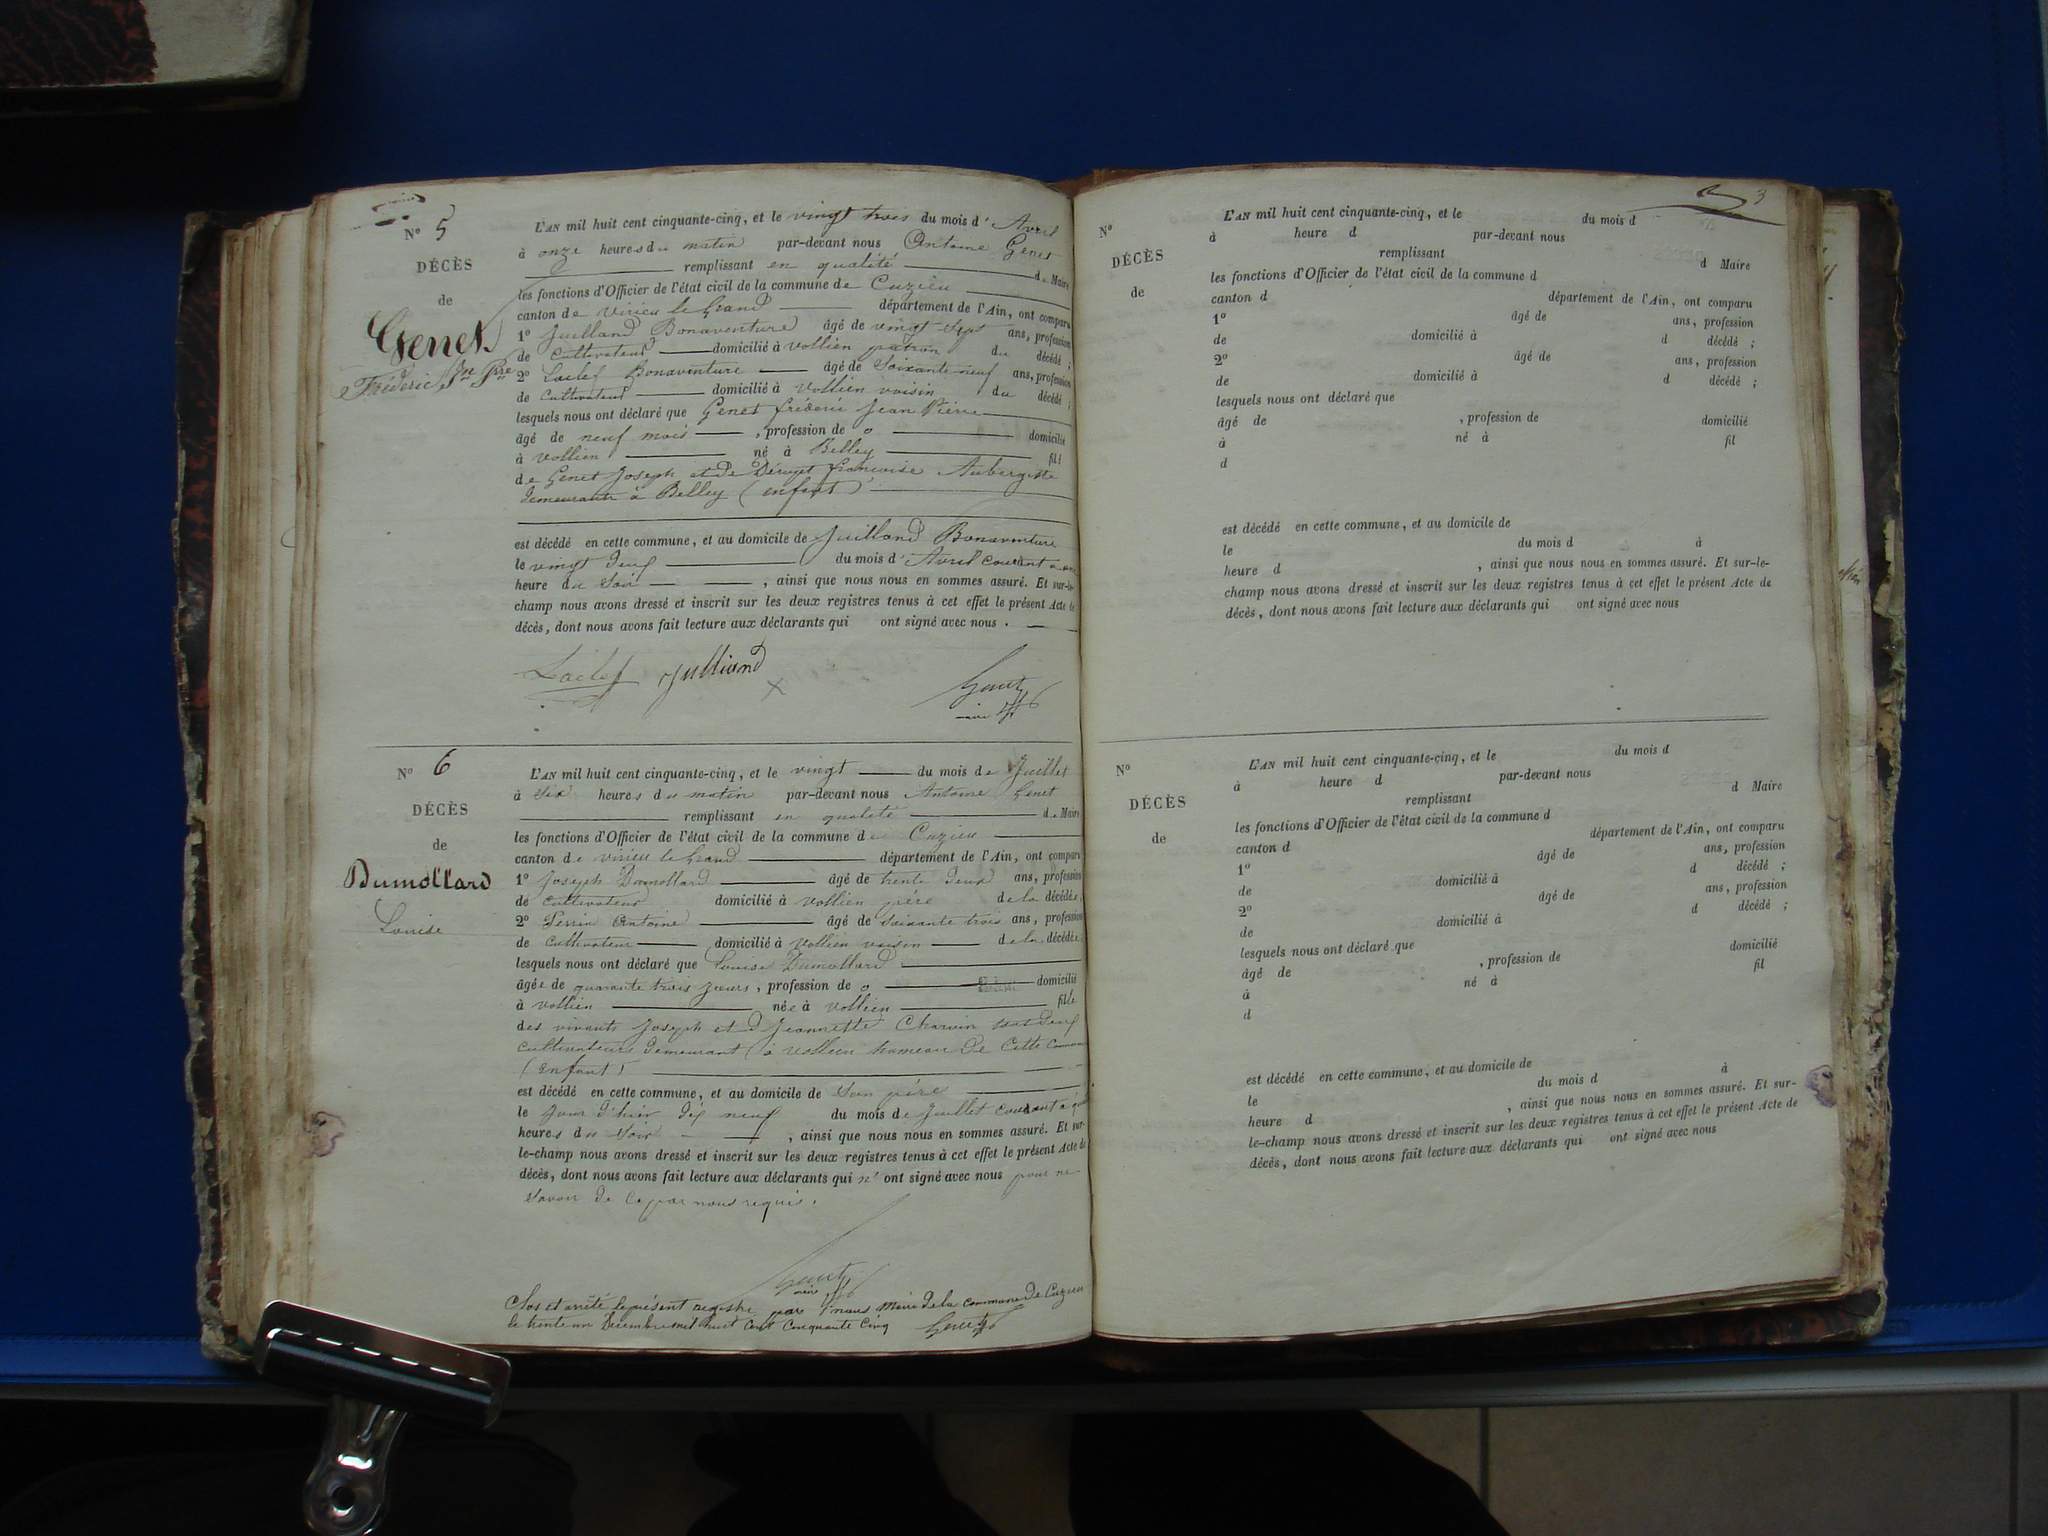 N° 5
DÉCÈS
de
Genet
Fréderic Jn Pre
L'AN mil huit cent cinquante-cinq, et le vingt trois du mois d'Avril
à onze heures du matin par-devant nous Antoine Genet
remplissant en qualité de Maire
les fonctions d'Officier de l'état civil de la commune de Cuzieu
canton de Virieu le Grand département de l'Ain, ont comparu
1° Juilland Bonaventure âgé de vingt Sept ans, profession
de Cultivateur domicilié à Vollien patron du décédé ;
2° Laclef Bonaventure âgé de Soixante neuf ans, profession
de Cultivateur domicilié à Vollien voisin du décédé ;
lesquels nous ont déclaré que Genet fréderic Jean Pierre
âgé de neuf mois , profession de o domicilié
à Vollien né à Belley fils
de Genet Joseph et de françoise Aubergiste
demeurants à Belley (enfant)
est décédé en cette commune, et au domicile de Juilland Bonaventure
le vingt deux du mois d'Avril courant à
heure du Soir , ainsi que nous nous en sommes assuré. Et sur-le-
champ nous avons dressé et inscrit sur les deux registres tenus à cet effet le présent Acte de
décès, dont nous avons fait lecture aux déclarants qui ont signé avec nous .
Laclef Julliand
Genet
maire
N° 6
DÉCÈS
de
Dumollard
Louise
L'AN mil huit cent cinquante-cinq, et le vingt du mois de Juillet
à Six heures du matin par-devant nous Antoine Genet
remplissant en qualité de Maire
les fonctions d'Officier de l'état civil de la commune de Cuzieu
canton de Virieu le Grand département de l'Ain, ont comparu
1° Joseph Dumollard âgé de trente deux ans, profession
de Cultivateur domicilié à Vollien père de la décédée,
2° Perrin Antoine âgé de Soixante trois ans, profession
de Cultivateur domicilié à Vollien voisin de la décédée
lesquels nous ont déclaré que Louise Dumollard
âgée de quarante trois jours , profession de o domicilié
à Vollien née à Vollien fille
des vivants Joseph et d Jeannette Charvin tous deux
cultivateurs demeurant à Vollien hameau de Cette Commune
(enfant)
est décédé en cette commune, et au domicile de Son père
le Jour d'hier dix neuf du mois de Juillet courant à
heures du Soir , ainsi que nous nous en sommes assuré. Et sur-
le-champ nous avons dressé et inscrit sur les deux registres tenus à cet effet le présent Acte de
décès, dont nous avons fait lecture aux déclarants qui n'ont signé avec nous pour ne
Savoir de Ce par nous requis.
Genet
maire
Clos et arrêté le présent registre par nous Maire de la commune de Cuzieu
le trente un Décembre mil huit cent Cinquante Cinq Genet
3
N°
DÉCÈS
de
L'AN mil huit cent cinquante-cinq, et le du mois d
à heure d par-devant nous
remplissant d Maire
les fonctions d'Officier de l'état civil de la commune d
canton d département de l'Ain, ont comparu
1° âgé de ans, profession
de domicilié à d décédé ;
2° âgé de ans, profession
de domicilié à d décédé ;
lesquels nous ont déclaré que
âgé de , profession de domicilié
à né à fil
d
est décédé en cette commune, et au domicile de
le du mois d à
heure d , ainsi que nous nous en sommes assuré. Et sur-le-
champ nous avons dressé et inscrit sur les deux registres tenus à cet effet le présent Acte de
décès, dont nous avons fait lecture aux déclarants qui ont signé avec nous
N°
DÉCÈS
de
L'AN mil huit cent cinquante-cinq, et le du mois d
à heure d par-devant nous
remplissant d Maire
les fonctions d'Officier de l'état civil de la commune d
canton d département de l'Ain, ont comparu
1° âgé de ans, profession
de domicilié à d décédé ;
2° âgé de ans, profession
de domicilié à d décédé ;
lesquels nous ont déclaré que
âgé de , profession de domicilié
à né à fil
d
est décédé en cette commune, et au domicile de
le du mois d à
heure d , ainsi que nous nous en sommes assuré. Et sur-
le-champ nous avons dressé et inscrit sur les deux registres tenus à cet effet le présent Acte de
décès, dont nous avons fait lecture aux déclarants qui ont signé avec nous